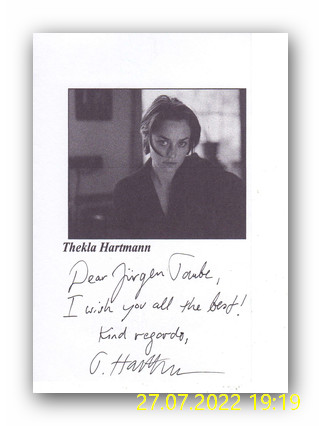 Thekla Hartmann
Dear Jürgen Taube,
I wish you all the best!
Kind regards,
T. Hartmann
27.07.2022 19:19